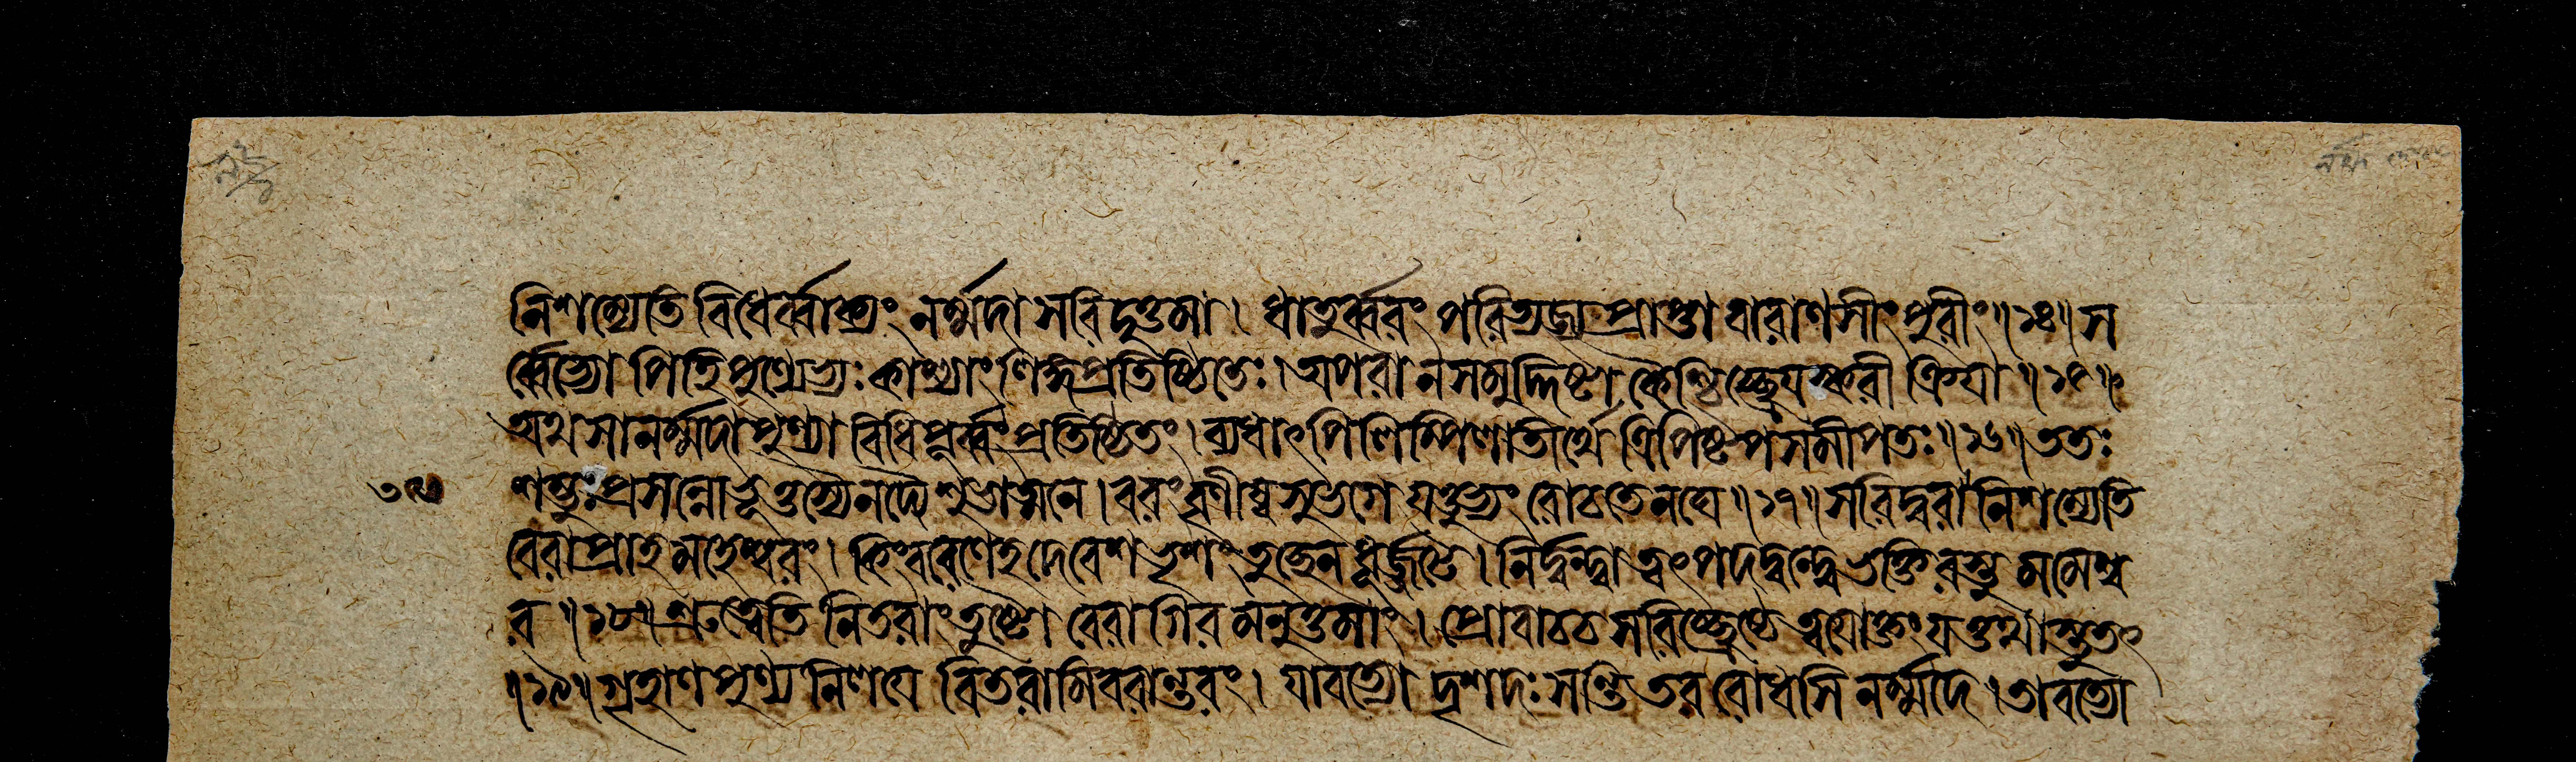 নিশম্যেতি বিধের্ব্বাক্যং নর্ম্মদা সরিদুত্তমা । ধাতুর্ব্বরং পরিত্যজ্য প্রাপ্তা বারাণসীং পুরীং ॥ ১৪ ॥ স
র্ব্বেভ্যো পি হি পুণ্যেভ্যঃ কাশ্যাং লিঙ্গপ্রতিষ্ঠিতেঃ । অপরা ন সমুদ্দিষ্টা কৈশ্চিচ্ছ্রেযস্করী ক্রিযা ॥ ১৫ ॥
অথ সা নর্ম্মদা পুণ্যা বিধিপূর্ব্বং প্রতিষ্ঠিতিং । ব্যধাৎ পিলিপ্পিলাতীর্থে ত্রিপিষ্টপসমীপতঃ ॥ ১৬ ॥ ততঃ
শম্ভুঃ প্রসন্নোভূত্তস্যৈ নদ্যৈ শুভাত্মনে । বরং বৃণীষ্ব সুভগে যত্তুভ্যং রোচতেনঘে ॥ ১৭ ॥ সরিদ্বরা নিশম্যেতি
রেবা প্রাহ মহেশ্বরং । কিং বরেণেহ দেবেশ ভৃশং তুচ্ছেন ধূর্জ্জটে । নির্দ্বন্দ্বা ত্বৎপদদ্বন্দ্বে ভক্তিরস্তু মমেশ্ব
র ॥ ১৮ ॥ শ্রুত্বেতি নিতরাং তুষ্টো রেবাগিরমনুত্তমাং । প্রোবাচ চ সরিচ্ছ্রেষ্ঠে ত্বযোক্তং যত্তথাস্তু তৎ
॥ ১৯ ॥ গৃহাণ পুণ্যনিলযে বিতরামি বরান্তরং । যাবত্যো দৃশদঃ সন্তি তব রোধসি নর্ম্মদে । তাবত্যো